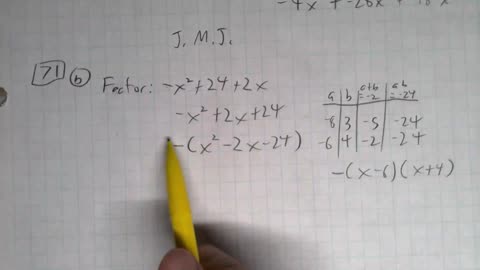 -4x + -26x + 18x
J. M. J.
71 b Factor: -x² + 24 + 2x
-x² + 2x + 24
-(x² - 2x - 24)
a b a+b = -2 ab = -24
-8 3 -5 -24
-6 4 -2 -24
-(x-6)(x+4)